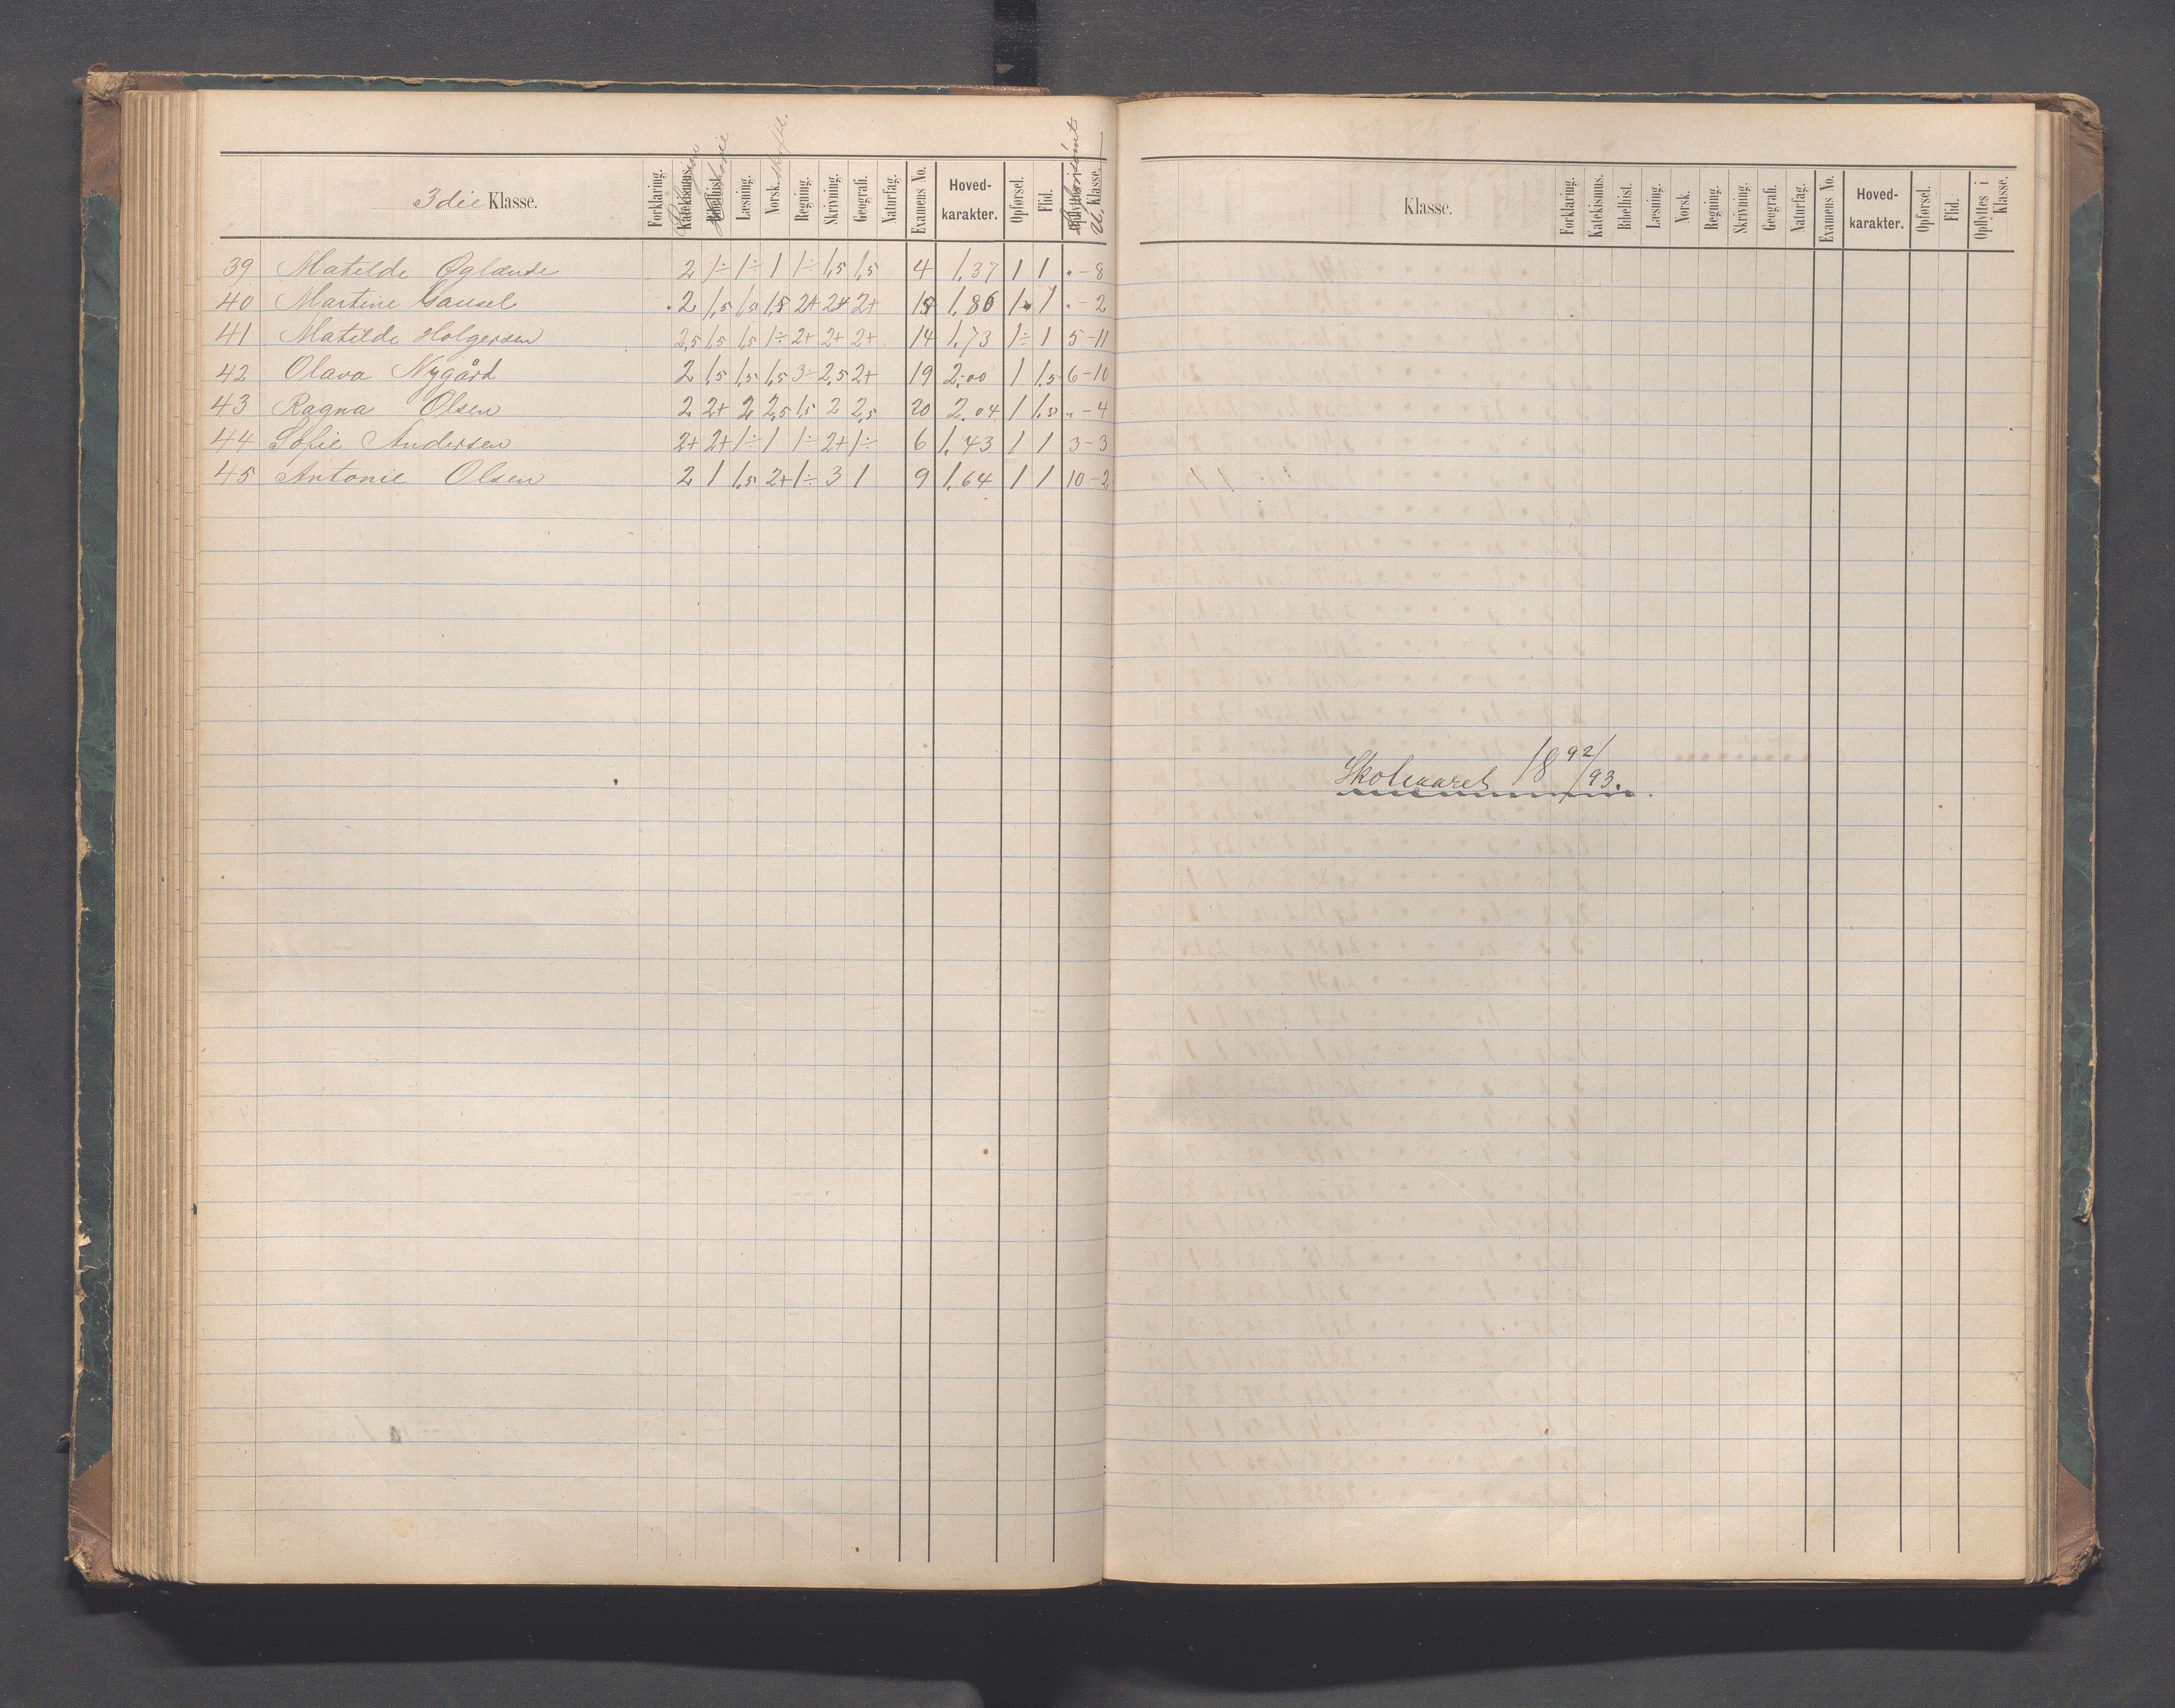 3die Klasse.
Forklaring. Katekismus. Bibelhist. Læsning. Norsk. Regning. Skrivning. Geografi. Naturfag. Examens No. Hoved-karakter. Opførsel. Flid. Klasse.
39 Matilde Oglænde 2 1÷ 1÷ 1 1÷ 1,5 1,5 4 1,37 1 1 „ - 8
40 Martine Gausel 2 1,5 1,5 1,5 2+ 2+ 2+ 15 1,86 1 1 „ - 2
41 Matilde Holgersen 2,5 1,5 1,5 1÷ 2+ 2+ 2+ 14 1,73 1÷ 1 5 - 11
42 Olava Nygård 2 1,5 1,5 1,5 3÷ 2,5 2+ 19 2,00 1 1,5 6 - 10
43 Ragna Olsen 2 2+ 2 2,5 1,5 2 2,5 20 2,04 1 1,5 „ - 4
44 Sofie Andersen 2+ 2+ 1÷ 1 1÷ 2+ 1÷ 6 1,43 1 1 3 - 3
45 Antonie Olsen 2 1 1,5 2+ 1÷ 3 1 9 1,64 1 1 10 - 2
Klasse.
Forklaring. Katekismus. Bibelhist. Læsning. Norsk. Regning. Skrivning. Geografi. Naturfag. Examens No. Hoved-karakter. Opførsel. Flid. Opflyttes i Klasse.
Skoleaaret 1892/93.